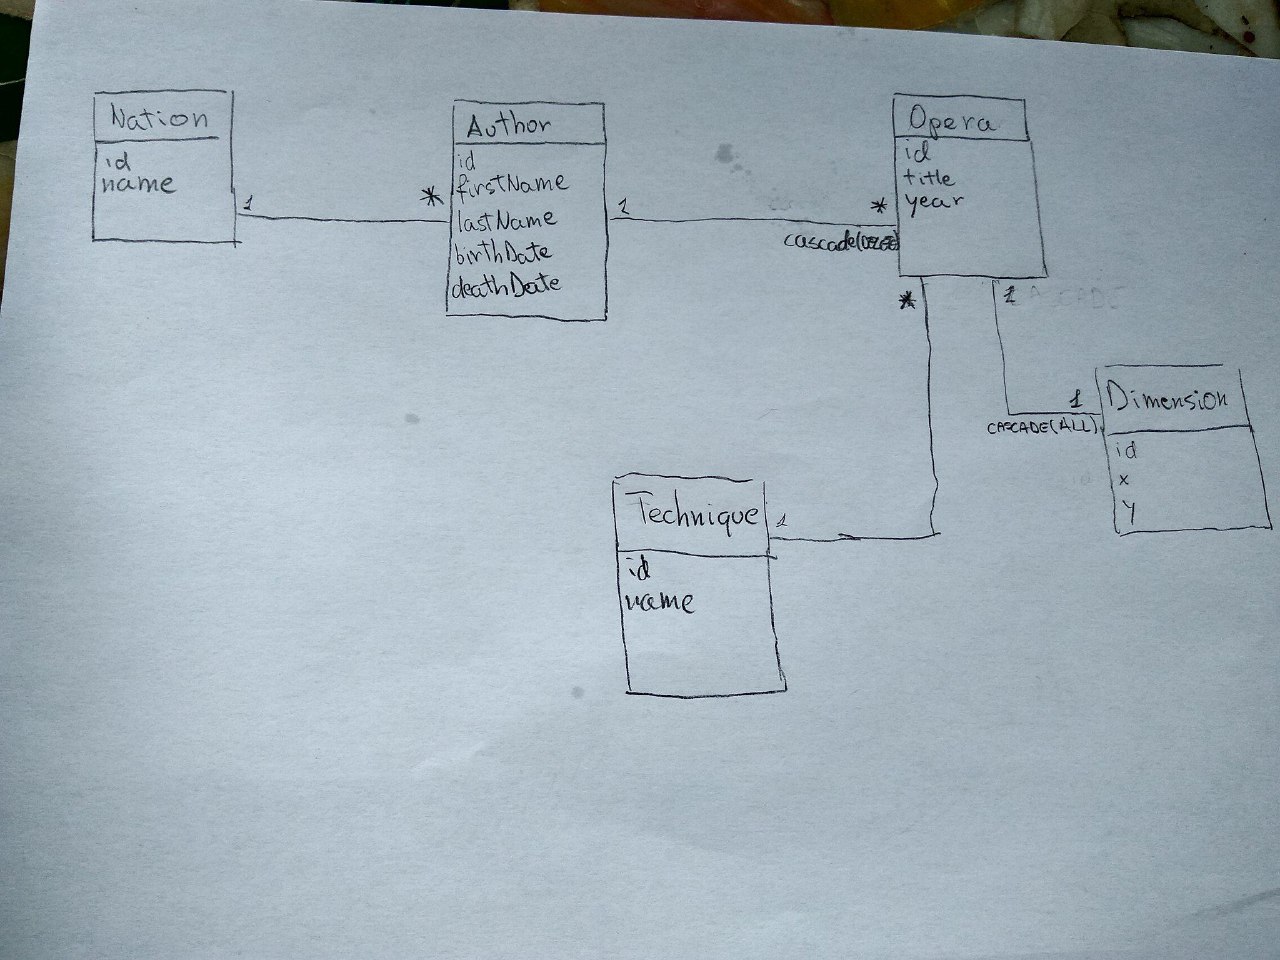 Nation
id
name
1
*
Author
id
firstName
lastName
birthDate
deathDate
1
*
Opera
id
title
year
*
1
1
CASCADE(ALL)
Dimension
id
x
y
Technique
id
name
1